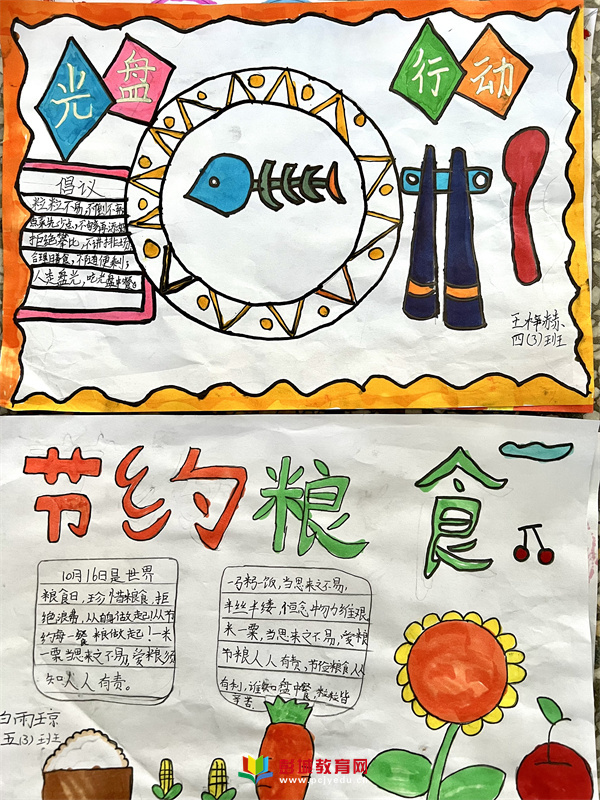 光盘
行动
倡议
粒粒不易，不倒不弃
点菜先少点，不够再添
拒绝攀比，不讲排场
合理膳食，不图便利；
人走盘光，吃光盘中餐。
四(3)班
节约粮食
10月16日是世界
粮食日，珍惜粮食，拒
绝浪费，从自做起！从节
约每一餐粮做起！一米
一粟当思来之不易，爱粮须
知人人有责。
一粥一饭，当思来之不易，
半丝半缕，恒念物力维艰
米一粟，当思来之不易，爱粮
节粮人人有责，节俭粮食人人
有利，谁知盘中餐，粒粒皆
辛苦。
白雨琼
五(3)班
彭城教育网
www.pcjyedu.cn